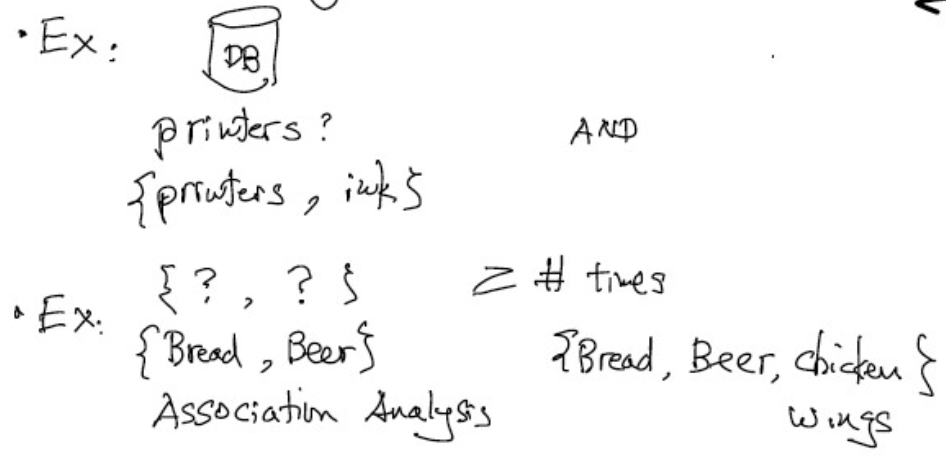 • Ex:
DB
printers? AND
{printers, ink}
{?, ?} ≥ # times
• Ex:
{Bread, Beer} {Bread, Beer, chicken}
Association Analysis wings